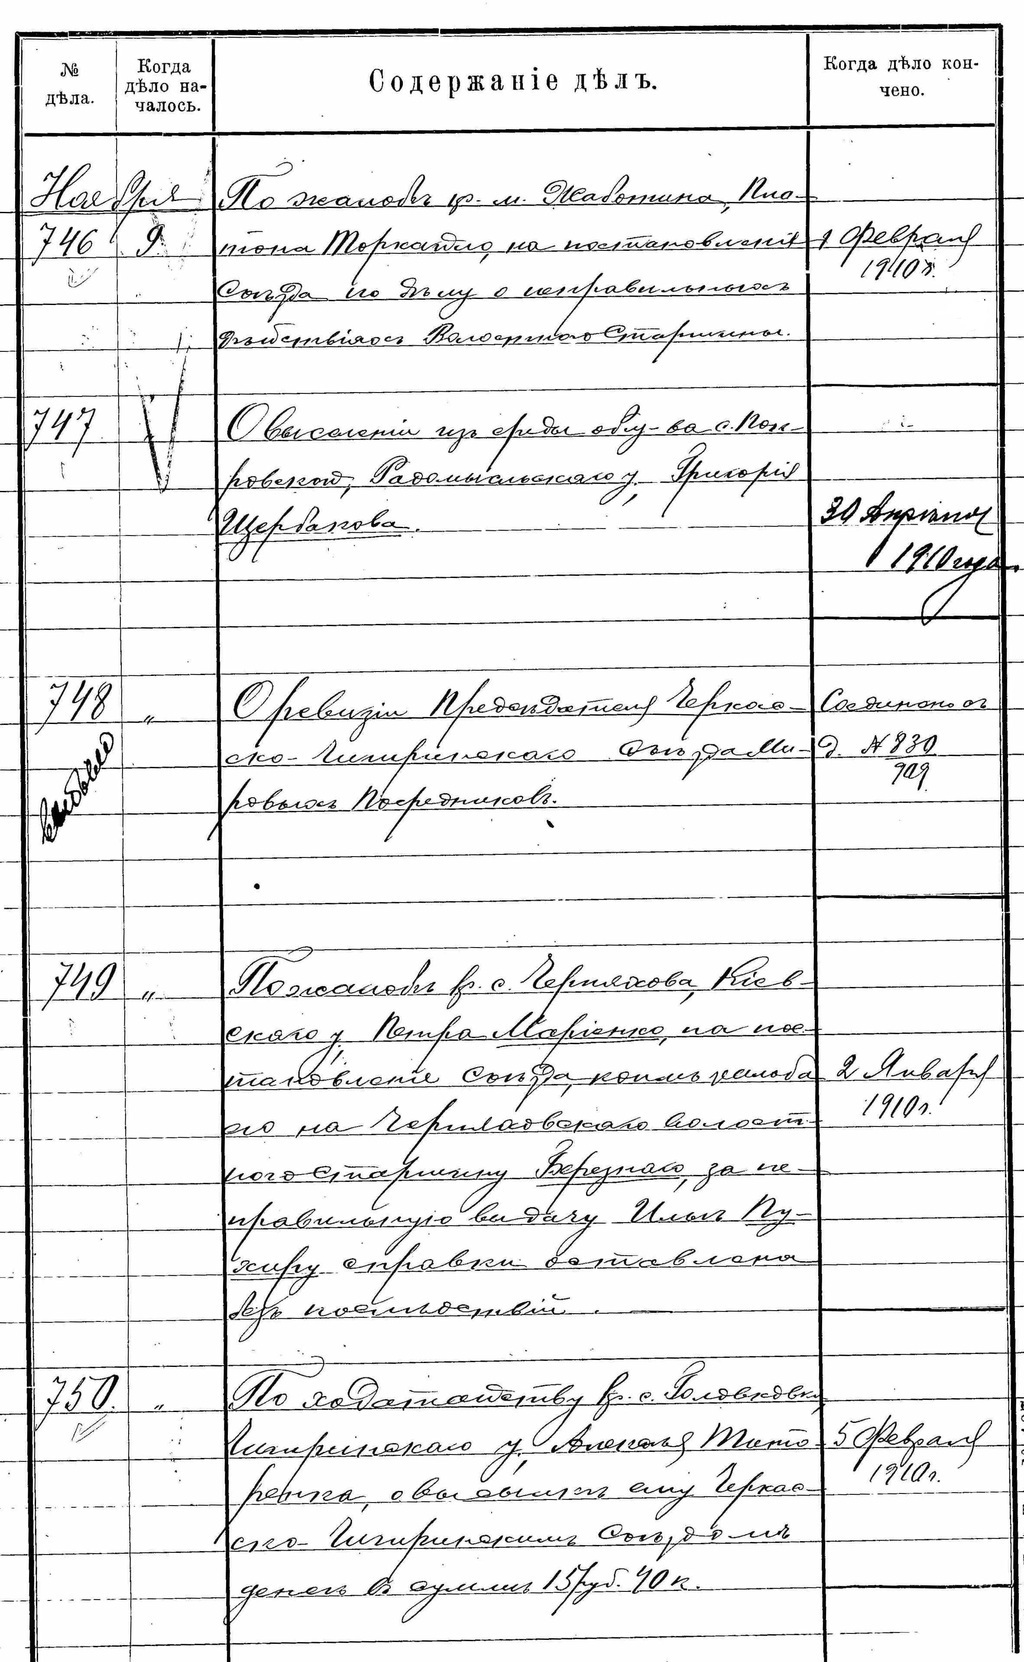 № дѣла.
Когда дѣло на-
чалось.
Содержаніе дѣлъ.
Когда дѣло кон-
чено.
Ноября
746 9 По жалобѣ кр. м. Жаботина, Пла-
тона Торкатло, на постановленіе
Съѣзда по дѣлу о неправильныхъ
дѣйствіяхъ Волостного Старшины.
1 Февраля
1910 г.
747 „ О выселеніи изъ среды общ-ва с. Пок-
ровской, Радомысльскаго у., Григорія
Щербакова.
30 Апрѣля
1910 года.
748 „ О ревизіи Предсѣдателя Черкас-
ско-Чигиринскаго Съѣзда Ми-
ровыхъ Посредниковъ.
Соединено съ
д. № 830
909
749 „ По жалобѣ кр. с. Черняхова, Кіев-
скаго у., Петра Маріенко, на пос-
тановленіе Съѣзда, коимъ жалоба
его на Черняховскаго волост-
ного Старшину Березнаго, за не-
правильную выдачу Ильѣ Пу-
хиру справки оставлена
безъ послѣдствій.
2 Января
1910 г.
750. „ По ходатайству кр. с. Головковки,
Чигиринскаго у., Алексѣя Тито-
ренка, о высылкѣ ему Черкас-
ско-Чигиринскимъ Съѣздомъ
денегъ въ суммѣ 15 руб. 40 к.
5 Февраля
1910 г.